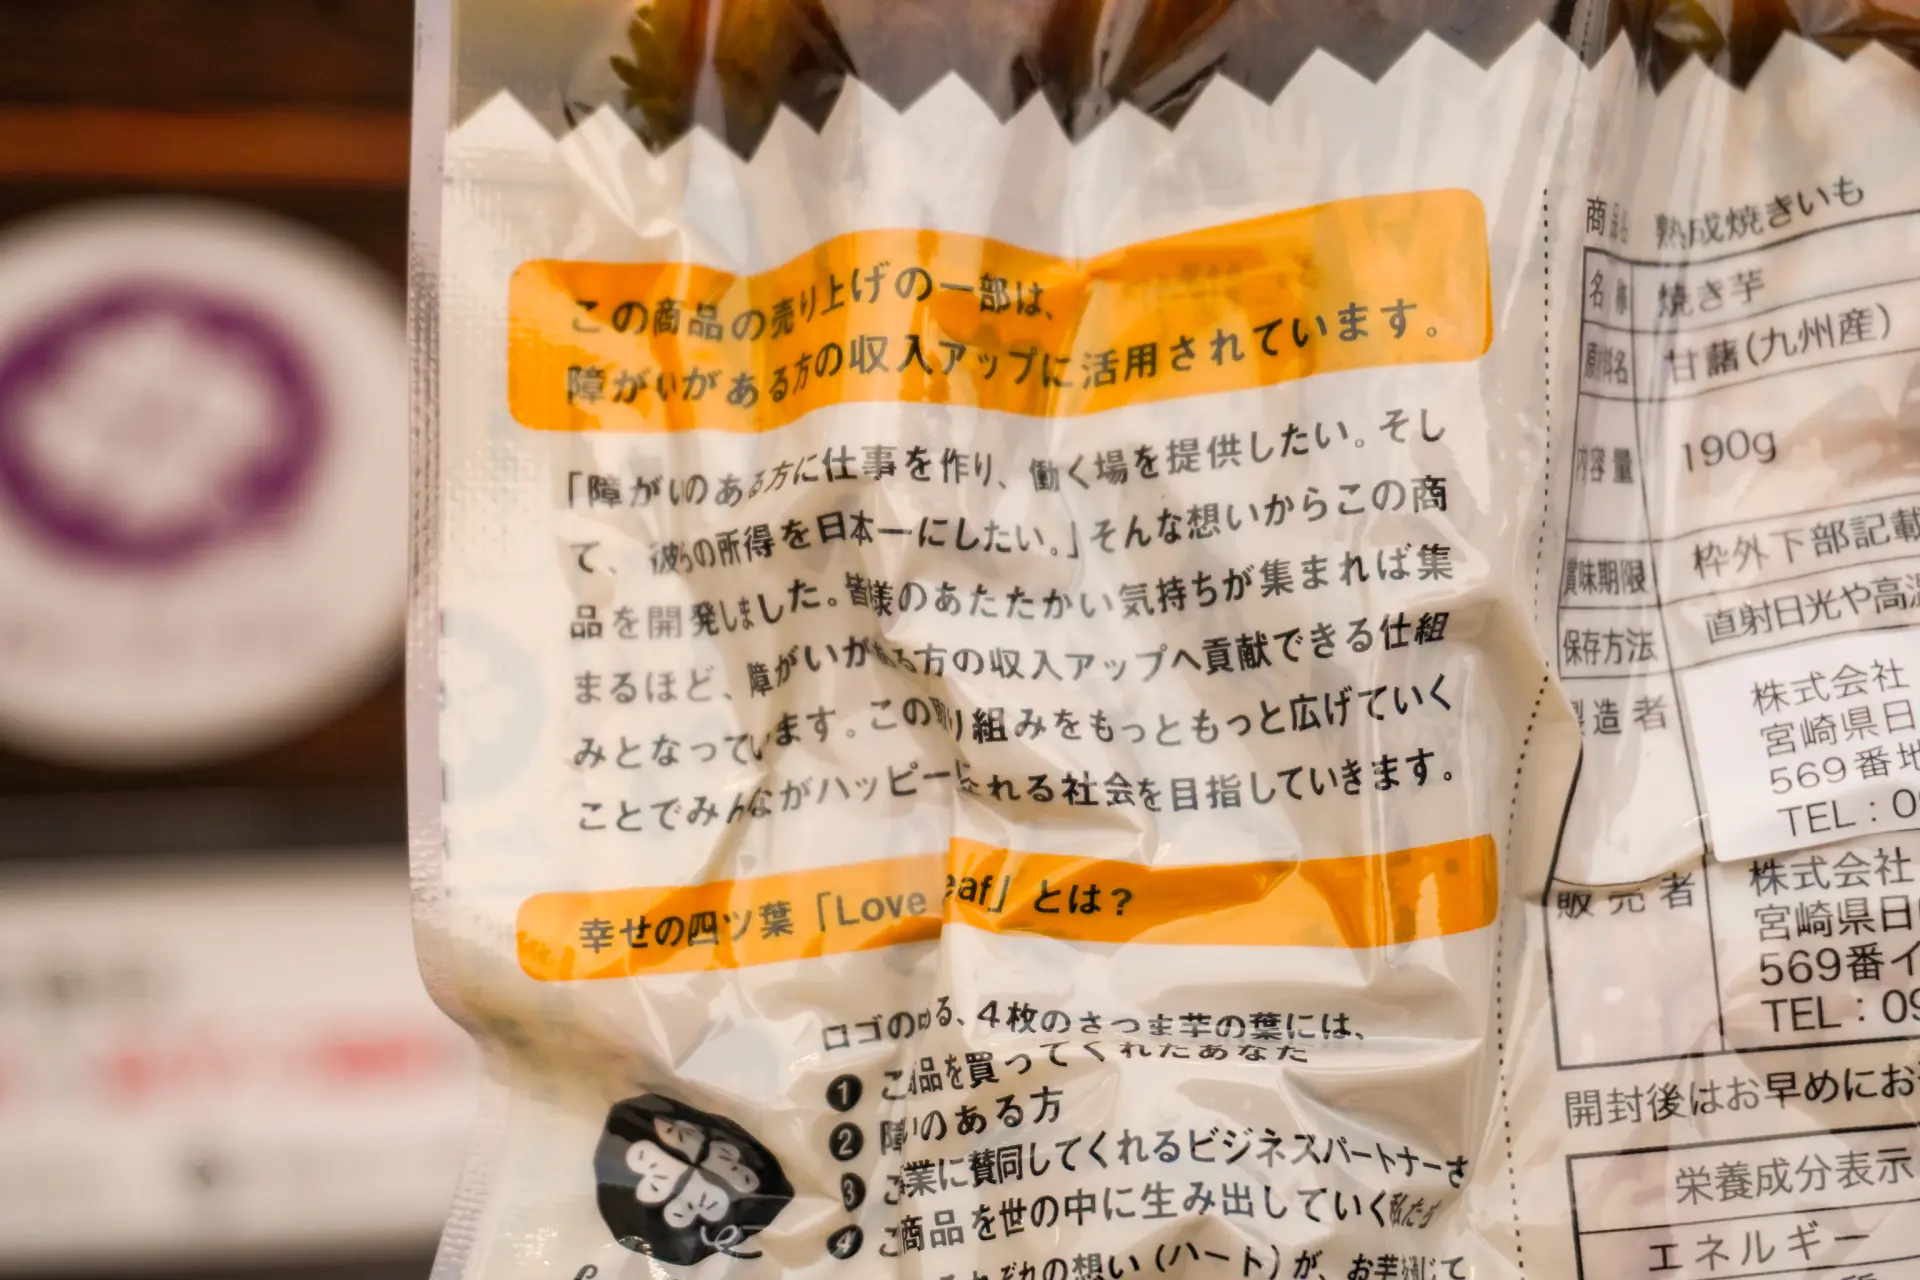 この商品の売り上げの一部は、
障がいがある方の収入アップに活用されています。
「障がいのある方に仕事を作り、働く場を提供したい。そし
て、彼らの所得を日本一にしたい。」そんな想いからこの商
品を開発しました。皆様のあたたかい気持ちが集まれば集
まるほど、障がいがある方の収入アップへ貢献できる仕組
みとなっています。この取り組みをもっともっと広げていく
ことでみんながハッピーになれる社会を目指していきます。
幸せの四ツ葉「Love eaf」とは?
ロゴの 4枚のさつま芋の葉には、
❶ こ 商品を買ってくれたあなた
❷ 障 のある方
❸ こ 業に賛同してくれるビジネスパートナーさ
❹ こ 商品を世の中に生み出していく私たち
ぞれの想い(ハート)が、お芋を通じて
商品名 熟成焼きいも
名称 焼き芋
原材料名 甘藷(九州産)
内容量 190g
賞味期限 枠外下部記載
保存方法 直射日光や高温
製造者 株式会社
宮崎県日
569番地
TEL:0
販売者 株式会社
宮崎県日
569番イ
TEL:09
開封後はお早めにお
栄養成分表示
エネルギー